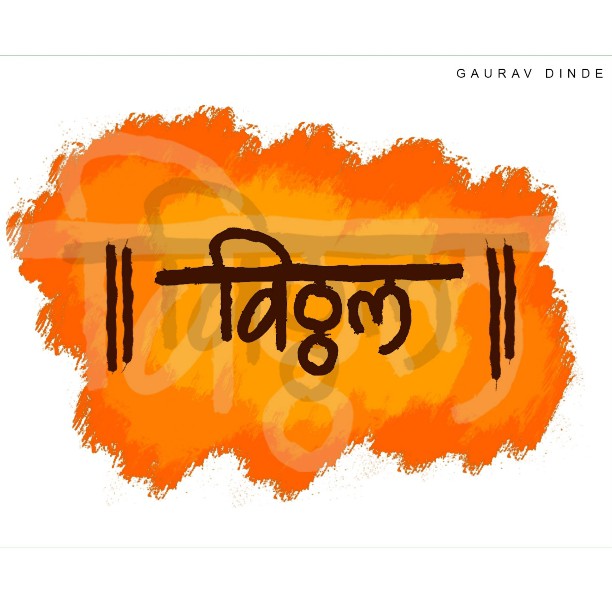 GAURAV DINDE
॥ विठ्ठल ॥